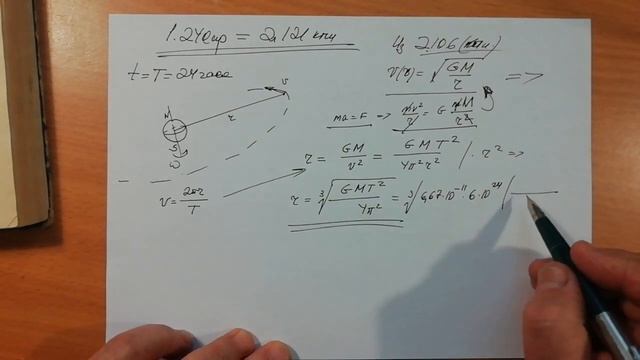 1.24 = 2.121
Из 2.106
t = T = 24 часа
v(r) = √(GM/r) =>
v
M
r
ma = F => mv²/r = G mM/r²
r = GM/v² = GMT²/4π²r² | · r² =>
v = 2πr/T
r = ∛(GMT²/4π²) = ∛(6,67·10⁻¹¹·6·10²⁴